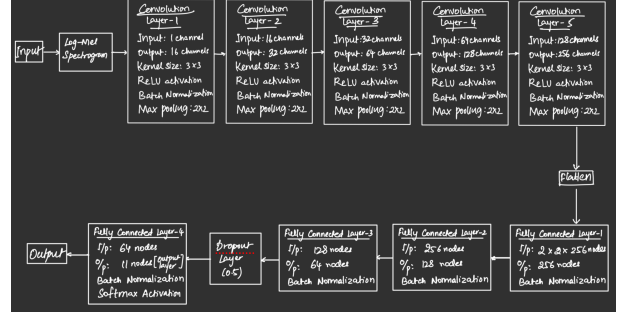 Input
Log-Mel
Spectrogram
Convolution
Layer-1
Input: 1 channel
Output: 16 channels
Kernel size: 3x3
ReLU activation
Batch Normalization
Max pooling: 2x2
Convolution
Layer-2
Input: 16 channels
Output: 32 channels
Kernel size: 3x3
ReLU activation
Batch Normalization
Max pooling: 2x2
Convolution
Layer-3
Input: 32 channels
Output: 64 channels
Kernel size: 3x3
ReLU activation
Batch Normalization
Max pooling: 2x2
Convolution
Layer-4
Input: 64 channels
Output: 128 channels
Kernel size: 3x3
ReLU activation
Batch Normalization
Max pooling: 2x2
Convolution
Layer-5
Input: 128 channels
Output: 256 channels
Kernel size: 3x3
ReLU activation
Batch Normalization
Max pooling: 2x2
Flatten
Fully Connected Layer-1
I/p: 2x2x256 nodes
O/p: 256 nodes
Batch Normalization
Fully Connected Layer-2
I/p: 256 nodes
O/p: 128 nodes
Batch Normalization
Fully Connected Layer-3
I/p: 128 nodes
O/p: 64 nodes
Batch Normalization
Dropout
Layer
(0.5)
Fully Connected Layer-4
I/p: 64 nodes
O/p: 11 nodes [output layer]
Batch Normalization
Softmax Activation
Output